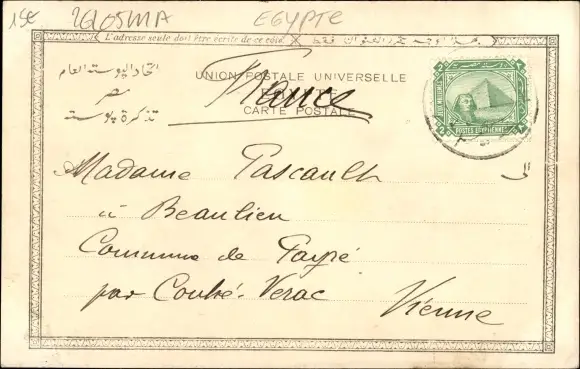 15€ EGYPTE
L'adresse seule doit être écrite de ce côté
UNION POSTALE UNIVERSELLE
اتحاد البوسته العام
مصر
تذكرة بوسته
EGYPTE
CARTE POSTALE
France
POSTES EGYPTIENNES
Madame Pascault
à Beaulieu
Commune de Payré
par Couhé-Verac
Vienne